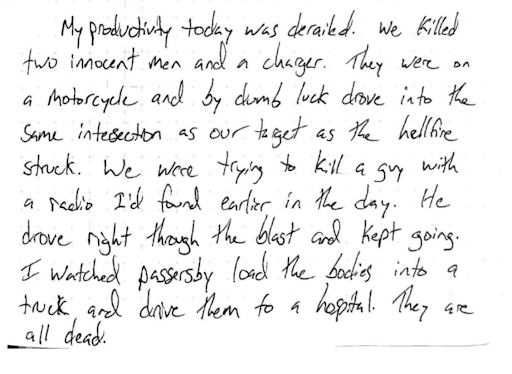 My productivity today was derailed. We killed
two innocent men and a charger. They were on
a motorcycle and by dumb luck drove into the
same intesection as our taget as the hellfire
struck. We were trying to kill a guy with
a radio I'd found earlier in the day. He
drove right through the blast and kept going.
I watched passersby load the bodies into a
truck and drive them to a hospital. They are
all dead.